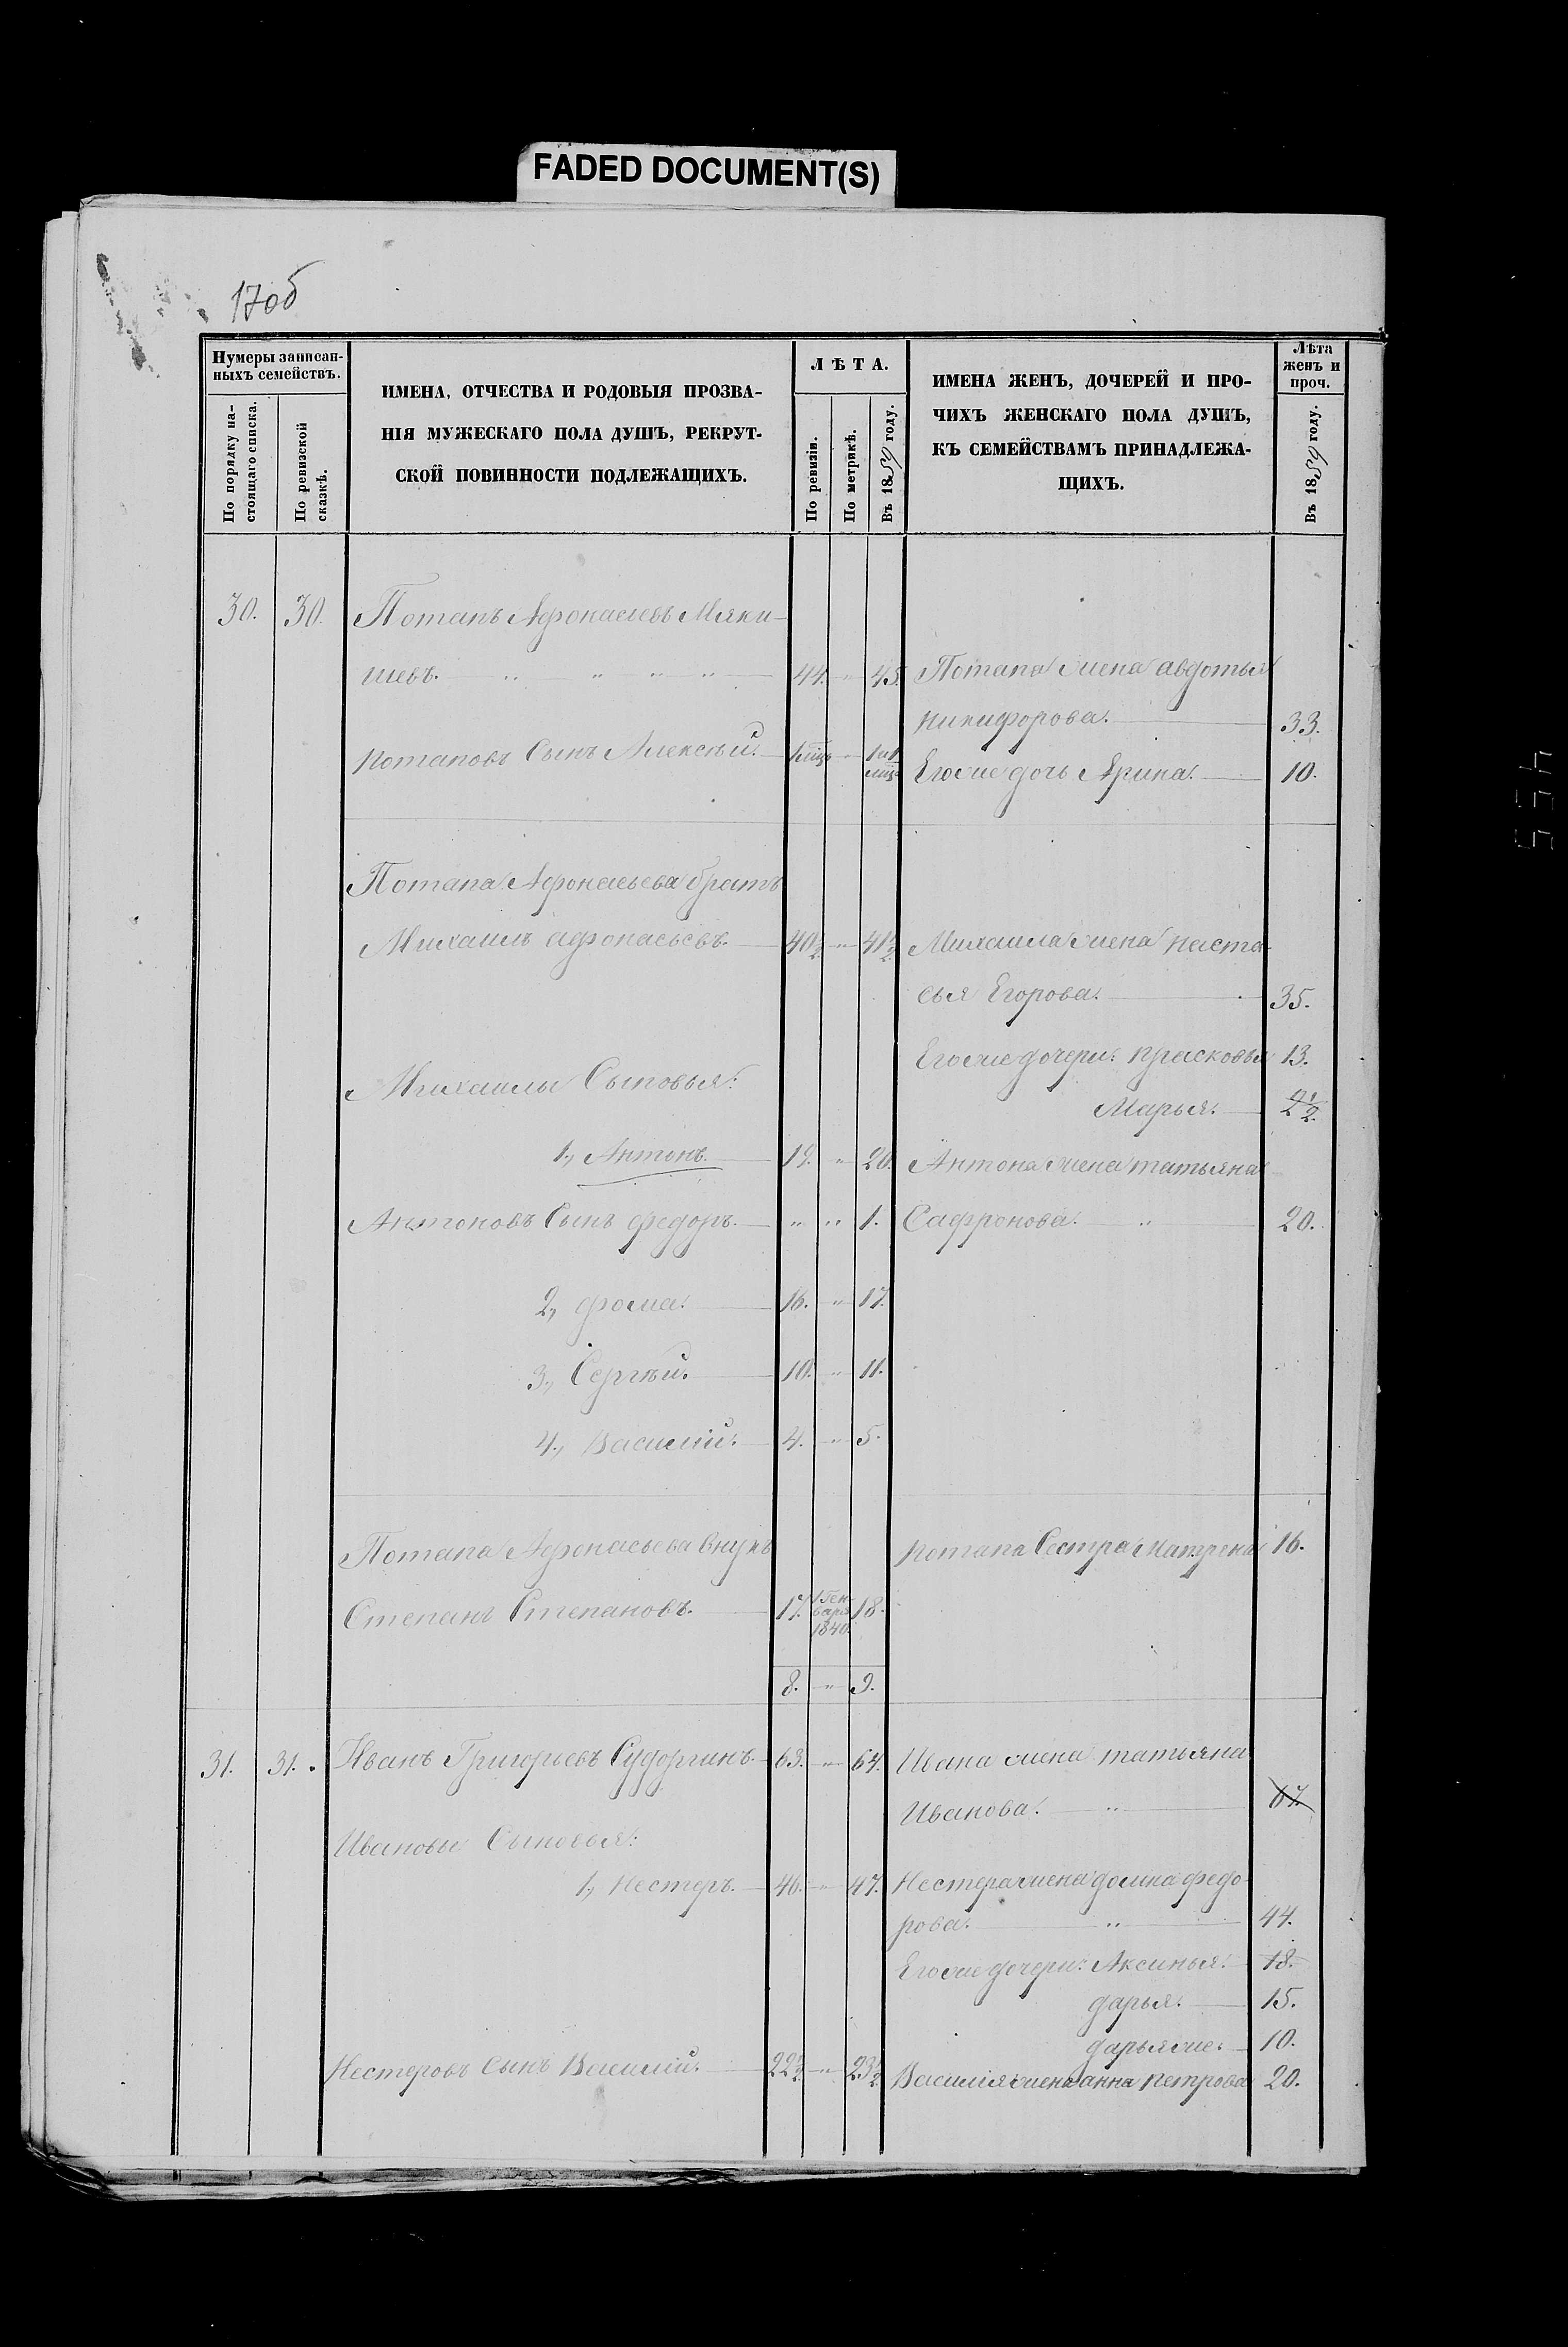 FADED DOCUMENT(S)
17об
Нумеры записан-
ныхъ семействъ.
По порядку на-
стоящаго списка.
По ревизской
сказкѣ.
ИМЕНА, ОТЧЕСТВА И РОДОВЫЯ ПРОЗВА-
НІЯ МУЖЕСКАГО ПОЛА ДУШЪ, РЕКРУТ-
СКОЙ ПОВИННОСТИ ПОДЛЕЖАЩИХЪ.
ЛѢТА.
По ревизіи.
По метрикѣ.
Въ 1859 году.
ИМЕНА ЖЕНЪ, ДОЧЕРЕЙ И ПРО-
ЧИХЪ ЖЕНСКАГО ПОЛА ДУШЪ,
КЪ СЕМЕЙСТВАМЪ ПРИНАДЛЕЖА-
ЩИХЪ.
Лѣта
женъ и
проч.
Въ 1859 году.
30. 30. Потапъ Афонасьевъ Мяки-
шевъ. 44. " 45. Потапа жена авдотья
никифорова. 33.
потаповъ Сынъ Алексѣй. Егоже дочь Ярина. 10.
Потапа Афонасьева братъ
Михаилъ афонасьевъ. 40½ " 41½ Михаила жена наста-
сья Егорова. 35.
Егоже дочери: прасковья 13.
Михаилы Сыновья:
Марья. 2½
1., Антонъ. 19. " 20. Антона жена татьяна
Антоновъ Сынъ федоръ. " " 1. Сафронова. " 20.
2., фома. 16. " 17.
3., Сергѣй. 10. " 11.
4., Василій. 4. " 5.
Потапа Афонасьева внукъ потапа Сестра Матрена 16.
Степанъ Степановъ. 17. 1 Ген-
варя
1840. 18.
8. " 9.
31. 31. Иванъ Григорьевъ Судоргинъ. 63. " 64. Ивана жена татьяна
Иванова. "
Ивановы Сыновья:
1., Нестеръ. 46. " 47. Нестера жена домна федо-
рова. " 44.
Егоже дочери: Аксинья. 18.
дарья. 15.
дарьяже. 10.
Нестеровъ сынъ Василій. 22½ " 23½ Василія жена анна петрова 20.
455